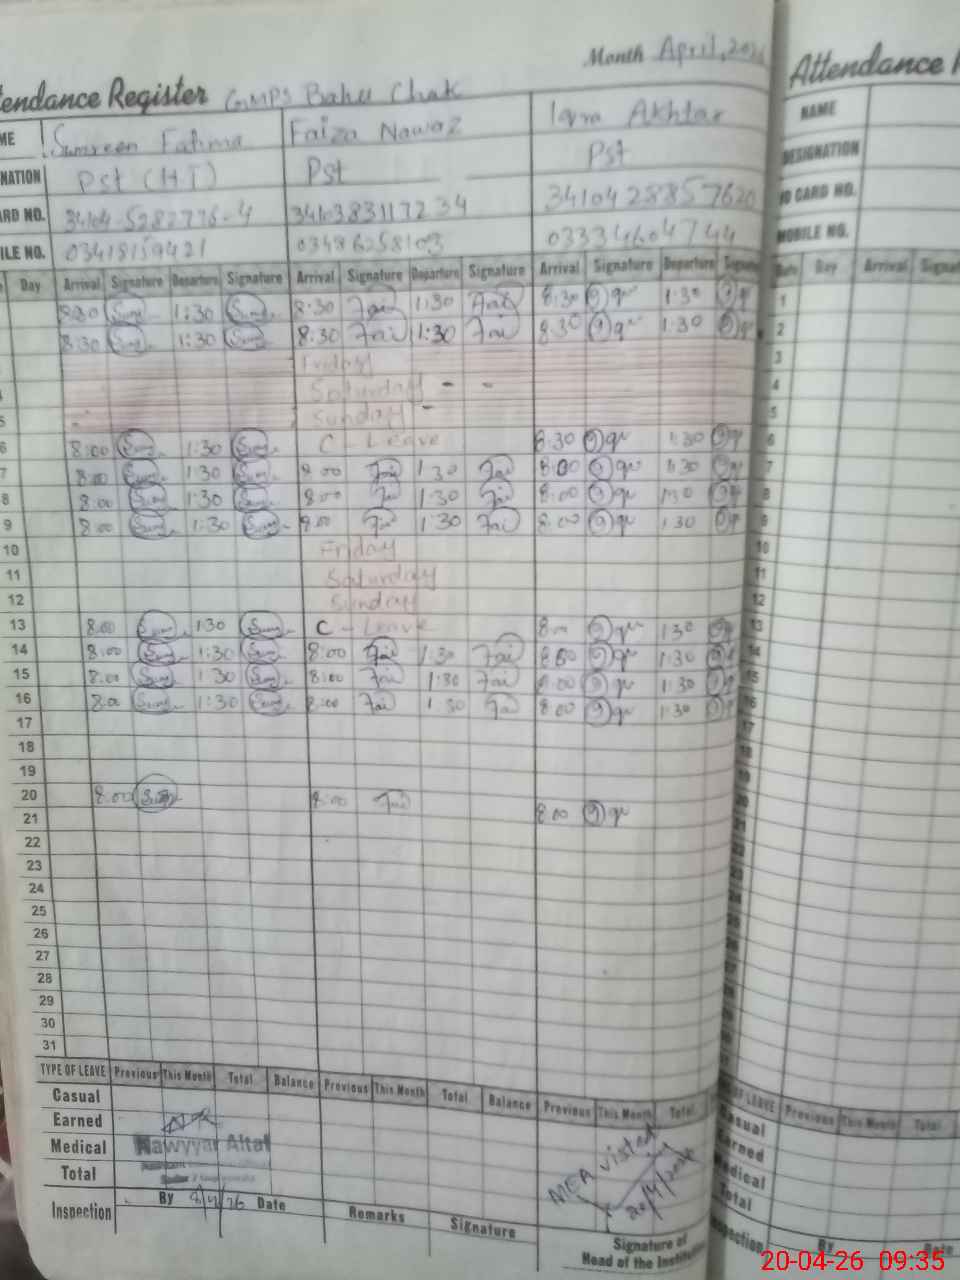 Month April, 2026
tendance Register GMPS Bahu Chak
Attendance R
ME Sumreen Fatima Faiza Nawaz Iqra Akhtar
NAME
NATION Pst (H.T) Pst Pst
DESIGNATION
ARD NO. 34104-5282776-4 3410383117234 3410428857620
ID CARD NO.
ILE NO. 03418159421 03486258103 03334604744
MOBILE NO.
Day Arrival Signature Departure Signature Arrival Signature Departure Signature Arrival Signature Departure Signature
Date Day Arrival Signat
8:30 Sum 1:30 Sum 8:30 Fai 1:30 Fai 8:30 Iqr 1:30 Iqr 1
8:30 Sum 1:30 Sum 8:30 Fai 1:30 Fai 8:30 Iqr 1:30 Iqr 2
Friday 3
4 Saturday - - 4
5 Sunday - 5
6 8:00 Sum 1:30 Sum C - Leave 8:30 Iqr 1:30 Iqr 6
7 8:00 Sum 1:30 Sum 8:00 Fai 1:30 Fai 8:00 Iqr 1:30 Iqr 7
8 8:00 Sum 1:30 Sum 8:00 Fai 1:30 Fai 8:00 Iqr 1:30 Iqr 8
9 8:00 Sum 1:30 Sum 8:00 Fai 1:30 Fai 8:00 Iqr 1:30 Iqr 9
10 Friday 10
11 Saturday 11
12 Sunday 12
13 8:00 Sum 1:30 Sum C - Leave 8:00 Iqr 1:30 Iqr 13
14 8:00 Sum 1:30 Sum 8:00 Fai 1:30 Fai 8:00 Iqr 1:30 Iqr 14
15 8:00 Sum 1:30 Sum 8:00 Fai 1:30 Fai 8:00 Iqr 1:30 Iqr 15
16 8:00 Sum 1:30 Sum 8:00 Fai 1:30 Fai 8:00 Iqr 1:30 Iqr 16
17 17
18 18
19
20 8:00 Sum 8:00 Fai
21 8:00 Iqr
22
23
24
25
26
27
28
29
30
31
TYPE OF LEAVE Previous This Month Total Balance Previous This Month Total Balance Previous This Month Total
OF LEAVE Previous This Month Total
Casual
Earned
Medical Nawyyar Altaf
Total
MEA visited
20/4/2026
asual
arned
edical
otal
Inspection By 8/4/26 Date Remarks Signature
Signature of
Head of the Institution
spection By Date
20-04-26 09:35